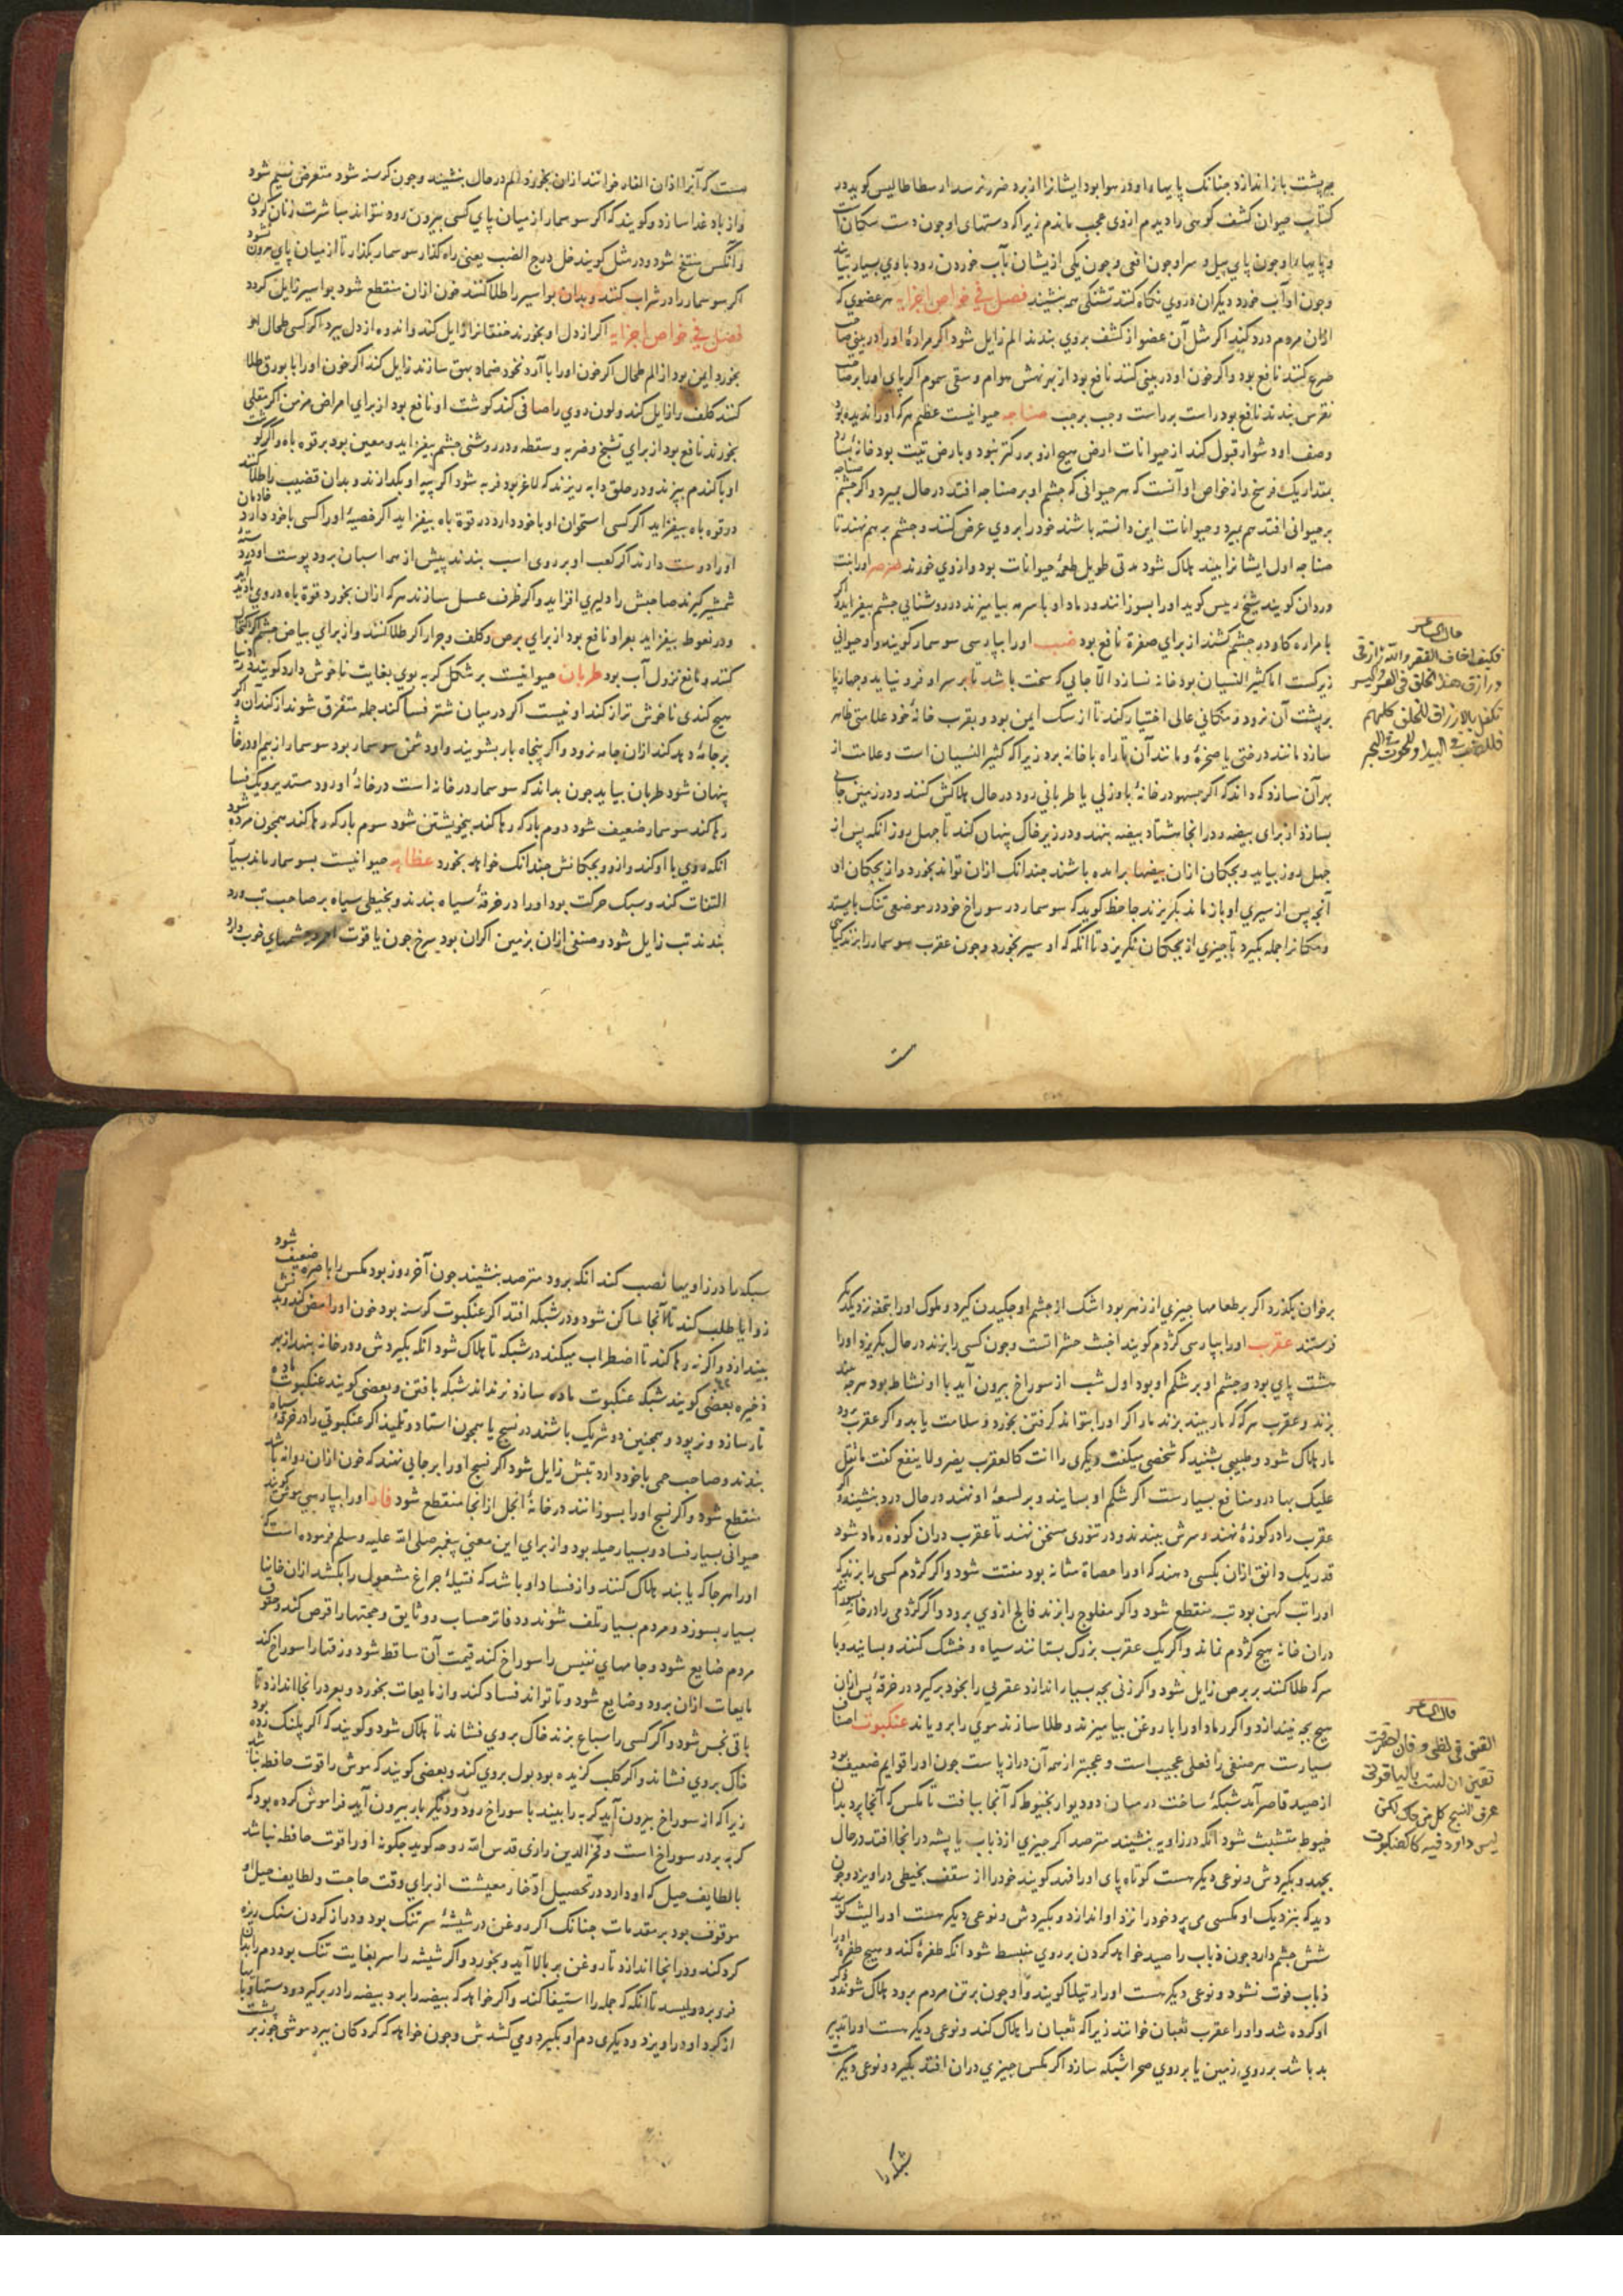 بر پشت باز اندازد چنانک پایهاء او در هوا بود ایشانرا ازبرد ضرر نرسد ارسطاطالیس کوید در
کتاب حیوان کشف کوهی را دیدم ازوی عجب ماندم زیرا که دستهای او چون دست سکان است
و پایهاء او چون پای پیل و سر او چون افعی و چون یکی ازیشان بآب خوردن رود باوی بسیار بیایند
و چون او آب خورد دیکران در وی نکاه کنند تشنکی همه بنشیند فصل فی خواص اجزایه هر عضوی که
ازان مردم درد کند اکر مثل آن عضو از کشف بروی بندند الم زایل شود اکر مراره او را در بینی صاحب
صرع کنند نافع بود و اکر خون او در بینی کنند نافع بود از بهر نهش هوام و سقی سموم اکر پای او را بر صاحب
نقرس بندند نافع بود راست بر راست و چپ بر چپ صناجه حیوانیست عظیم هر که او را ندیده بود
وصف او دشوار قبول کند از حیوانات ارض هیچ ازو بزرکتر نبود و بارض تبت بود خانه بسازد
بمقدار یک فرسخ و از خواص او آنست که هر حیوانی که چشم او بر صناجه افتد در حال بمیرد و اکر چشم صناجه
بر حیوانی افتد هم بمیرد و حیوانات این دانسته باشند خود را بروی عرض کنند و چشم بر هم نهند تا
صناجه اول ایشانرا بیند هلاک شود مدتی طویل طعمه حیوانات بود و ازوی خورند صرصر اورا بنت
وردان کویند شیخ رییس کوید او را بسوزانند و رماد او با سرمه بیامیزند در روشنایی چشم بیفزاید و اکر
با مراره کاو در چشم کشند از برای صفره نافع بود ضب اورا بپارسی سوسمار کویند و او حیوانی
زیرکست اما کثیر النسیان بود خانه نسازد الا جایی که سخت باشد تا بر سر او فرو نیاید و چهارپا
بر پشت آن نرود و مکانی عالی اختیار کند تا از سک ایمن بود و بقرب خانه خود علامتی ظاهر
سازد مانند درختی یا صخره و مانند آن تا راه با خانه برد زیرا که کثیر النسیان است و علامت از
بهر آن سازد که داند که اکر بسهو در خانه یا ورلی یا ظربانی رود در حال هلاکش کنند و در زمین جایی
بسازد از برای بیضه و در انجا هشتاد بیضه بنهد و در زیر خاک پنهان کند تا چهل روز انکه پس از
چهل روز بیاید و بچکان ازان بیضها برامده باشند چندانک ازان تواند بخورد و از بچکان او
آنچه پس از سیری او باز ماند بکریزند جاحظ کوید که سوسمار در سوراخ خود در موضعی تنک بایستد
و مکانرا جمله بکیرد تا چیزی از بچکان نکریزد تا انکه که او سیر بخورد و چون عقرب سوسمار را بزند کیاهی
قال الشاعر
فکیف اخاف الفقر والله رازقی
ورازق هذا الخلق فی العسر والیسر
تکفل بالارزاق للخلق کلهم
وللضب فی البیدا وللحوت فی البحر
هست که آنرا اذان الفار خوانند ازان بخورد الم در حال بنشیند و چون کرسنه شود متعرض نسیم شود
و از باد غدا سازد و کویند که اکر سوسمار از میان پای کسی بیرون رود نتواند مباشرت زنان کردن
و آنکس منتفخ شود و در مثل کویند خل درج الضب یعنی راه کذار سوسمار بکذار تا از میان پای بیرون نشود
اکر سوسمار را در شراب کنند و بدان بواسیر را طلا کنند خون ازان منقطع شود بواسیر زایل کردد
فصل فی خواص اجزایه اکر از دل او بخورند خفقانرا زایل کند و اندوه از دل ببرد اکر کسی طحال او
بخورد ایمن بود از الم طحال اکر خون اورا با آرد نخود ضماد بهق سازند زایل کند اکر خون اورا با بورق طلا
کنند کلف را زایل کند و لون روی را صافی کند کوشت او نافع بود از برای امراض مزمن اکر مقلی
بخورند نافع بود از برای تشنج و ضربه و سقطه و در روشنی چشم بیفزاید و معین بود بر قوه باه و اکر کوشت
او با کندم بپزند و در حلق دابه ریزند که لاغر بود فربه شود اکر پیه او بکدازند و بدان قضیب را طلا کنند
در قوه باه بیفزاید اکر کسی استخوان او با خود دارد در قوه باه بیفزاید اکر خصیه اورا کسی با خود دارد خادمان
اورا دوست دارند اکر کعب او بر روی اسب بندند پیش از همه اسبان برود پوست او در دسته
شمشیر کیرند صاحبش را دلیری افزاید و اکر ظرف عسل سازند هر که ازان بخورد قوه باه در وی بادید آید
و در نعوظ بیفزاید بعر او نافع بود از برای برص و کلف و جرار اکر طلا کنند و از برای بیاض چشم اکر اکتحال
کنند و نافع نزول آب بود ظربان حیوانیست بر شکل کربه بوی بغایت ناخوش دارد کویند در دنیا
هیچ کندی ناخوش تر از کند او نیست اکر در میان شتر فسا کند جمله متفرق شوند از کند آن و اکر
بر جامه دهد کند ازان جامه نرود و اکر پنجاه بار بشویند و او دشمن سوسمار بود سوسمار از بیم او در خانه
پنهان شود ظربان بیاید چون بداند که سوسمار در خانه است در خانه او رود مستدبر و یک فسا
رها کند سوسمار ضعیف شود دوم بار که رها کند بیخویشتن شود سوم بار که رها کند همچون مرده شود
انکه روی با او کند و ازو و بچکانش چندانک خواهد بخورد عظایه حیوانیست بسوسمار ماند بسیار
التفات کند و سبک حرکت بود اورا در خرقه سیاه بندند و بخیطی سیاه بر صاحب تب ورد
بندند تب زایل شود و صنفی ازان بزمین اکران بود سرخ چون یاقوت احمر و چشمهای خوب دارد
بر خوان بکذرد اکر بر طعامها چیزی از زهر بود اشک از چشم او چکیدن کیرد و ملوک اورا بتحفه نزد یکدیکر
فرستند عقرب اورا بپارسی کژدم کویند اخبث حشراتست و چون کسی را بزند در حال بکریزد اورا
هشت پای بود و چشم او بر شکم او بود اول شب از سوراخ بیرون آید با او نشاط بود هر چه بیند
بزند و عقرب هر که که مار بیند بزند مار اکر اورا بتواند کرفتن بخورد و سلامت یابد و اکر عقرب برود
مار هلاک شود و طبیبی بشنید که شخصی میکفت دیکری را انت کالعقرب یضر ولا ینفع کفت ما اقل
علیک بها در و منافع بسیارست اکر شکم او بسایند و بر لسعه او نهند در حال درد بنشیند و اکر
عقرب را در کوزه نهند و سرش ببندند و در تنوری مسخن نهند تا عقرب دران کوزه رماد شود
قدر یک دانق ازان بکسی دهند که اورا حصاة مثانه بود مفتت شود و اکر کژدم کسی را بزند که
اورا تب کهن بود تب منقطع شود و اکر مفلوج را بزند فالج ازوی برود و اکر کژدمی را در خانه بسوزانند
دران خانه هیچ کژدم نماند و اکر یک عقرب بزرک بستانند سیاه و خشک کنند و بسایند و با
سرکه طلا کنند بر برص زایل شود و اکر زنی بچه بسیار اندازد عقربی را بخود برکیرد در خرقه پس ازان
هیچ بچه نیندازد و اکر رماد اورا با روغن بیامیزند و طلا سازند موی را برویاند عنکبوت اصناف
بسیارست هر صنفی را فعلی عجیب است و عجبتر از همه آن درازپاست چون اورا قوایم ضعیف بود
از صید قاصر آمد شبکه ساخت در میان دو دیوار بخیوط که آنجا ببافت تا مکس که آنجا پرد بدان
خیوط متشبث شود انکه در زاویه بنشیند مترصد اکر چیزی از ذباب یا پشه در انجا افتد در حال
بجهد و بکیردش و نوعی دیکر هست کوتاه پای اورا فهد کویند خود را از سقف بخیطی دراویزد و چون
دید که بنزدیک او مکسی می پرد خود را نزد او اندازد و بکیردش و نوعی دیکر هست اورا لیث کویند
شش چشم دارد چون ذباب را صید خواهد کردن بر روی منبسط شود انکه طفره کند و هیچ طفره اورا
ذباب فوت نشود و نوعی دیکر هست اورا رتیلا کویند و او چون بر تن مردم برود هلاک شوند و ذکر
او کرده شد و اورا عقرب ثعبان خوانند زیرا که ثعبان را هلاک کند و نوعی دیکر هست اورا تدبیر
بد باشد بر روی زمین یا بر روی صحرا شبکه سازد اکر مکس چیزی دران افتد بکیرد و نوعی دیکر هست
شبکه را
قال الشاعر
القنی فی لظی فان احرقتنی
تیقن ان لست بالیاقوت
عرف النسج کل من حاک لکن
لیس داود فیه کالعنکبوت
شبکه را در زاویها نصب کند انکه برود مترصد بنشیند چون آخر روز بود مکس را باصره ضعیف شود
زوایا طلب کند تا آنجا ساکن شود و در شبکه افتد اکر عنکبوت کرسنه بود خون اورا مص کند و تنش
بیندازد و اکر نه رها کند تا اضطراب میکند در شبکه تا هلاک شود انکه بکیردش و در خانه بنهد از بهر
ذخیره بعضی کویند شبکه عنکبوت ماده سازد نر نداند شبکه بافتن و بعضی کویند عنکبوت ماده
تار سازد و نر پود و همچنین دو شریک باشند در نسج یا همچون استاد و تلمیذ اکر عنکبوتی را در خرقه سیاه
بندند و صاحب حمی با خود دارد تبش زایل شود اکر نسج اورا بر جایی نهند که خون ازان روانه باشد
منقطع شود و اکر نسج اورا بسوزانند در خانه انجل ازانجا منقطع شود فار اورا بپارسی موش کویند
حیوانی بسیار فساد و بسیار حیله بود و از برای این معنی پیغمبر صلی الله علیه وسلم فرموده است که
اورا هر جا که یابند هلاک کنند و از فساد او باشد که فتیله چراغ مشعول را بکشد ازان خانها
بسیار بسوزد و مردم بسیار تلف شوند و دفاتر حساب و وثایق و حجتها را قرض کند و حقوق
مردم ضایع شود و جامهای نفیس را سوراخ کند قیمت آن ساقط شود و زقها را سوراخ کند
مایعات ازان برود و ضایع شود و تا تواند فساد کند و از مایعات بخورد و بعر در انجا اندازد تا
باقی نجس شود و اکر کسی را سباع بزند خاک بروی فشاند تا هلاک شود و کویند که اکر پلنک زده بود
خاک بروی فشاند و اکر کلب کزیده بود بول بروی کند و بعضی کویند که موش را قوت حافظه نباشد
زیرا که از سوراخ بیرون آید کربه را بیند با سوراخ رود و دیکر بار بیرون آید فراموش کرده بود که
کربه بر در سوراخ است و فخر الدین رازی قدس الله روحه کوید چکونه اورا قوت حافظه نباشد
با لطایف حیل که او دارد در تحصیل ادخار معیشت از برای وقت حاجت و لطایف حیل او
موقوف بود بر مقدمات چنانک اکر روغن در شیشه سر تنک بود و دراز کردن سنک ریزه
کرد کند و در انجا اندازد تا روغن بر بالا آید و بخورد و اکر شیشه را سر بغایت تنک بود دم را بدان
فرو برد و لیسد تا انکه که جمله را استیفا کند و اکر خواهد که بیضه را برد بیضه را در بر کیرد و دستها و پایها
از کرد او دراویزد و دیکری دم او بکیرد و می کشدش و چون خواهد که کردکان ببرد موشی خود را بر پشت